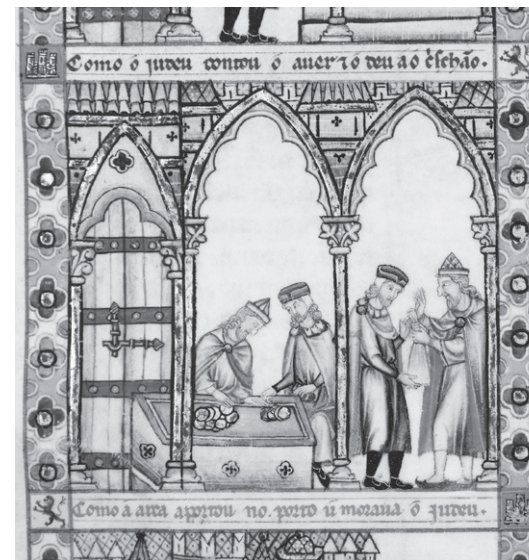 Como o iudeu contou o auer ⁊ o deu ao c̀schão.
Como a arca aportou no. porto u moraua o iudeu.